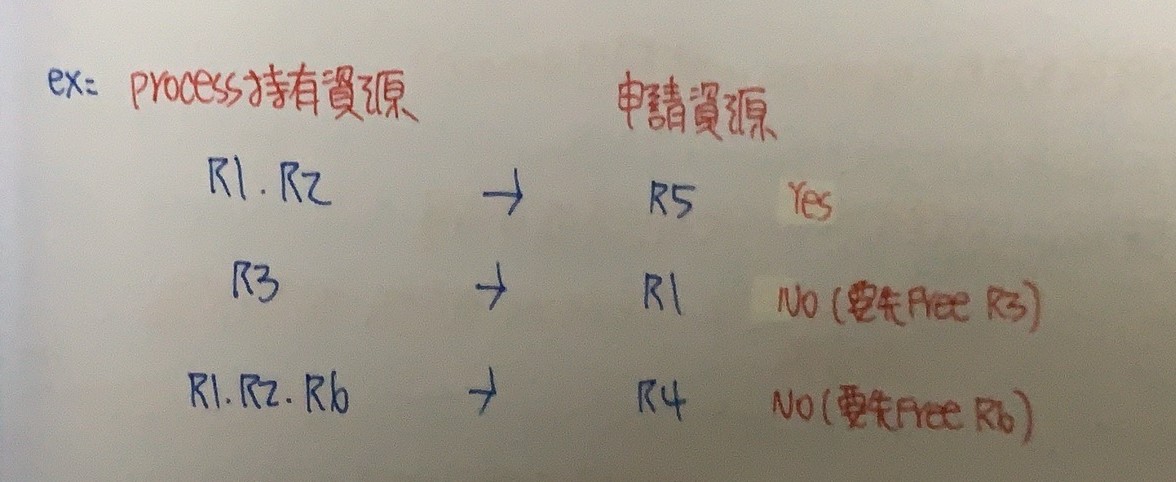 ex: process持有資源 申請資源
R1.R2 → R5 Yes
R3 → R1 No (要先Free R3)
R1.R2.R6 → R4 No (要先Free R6)